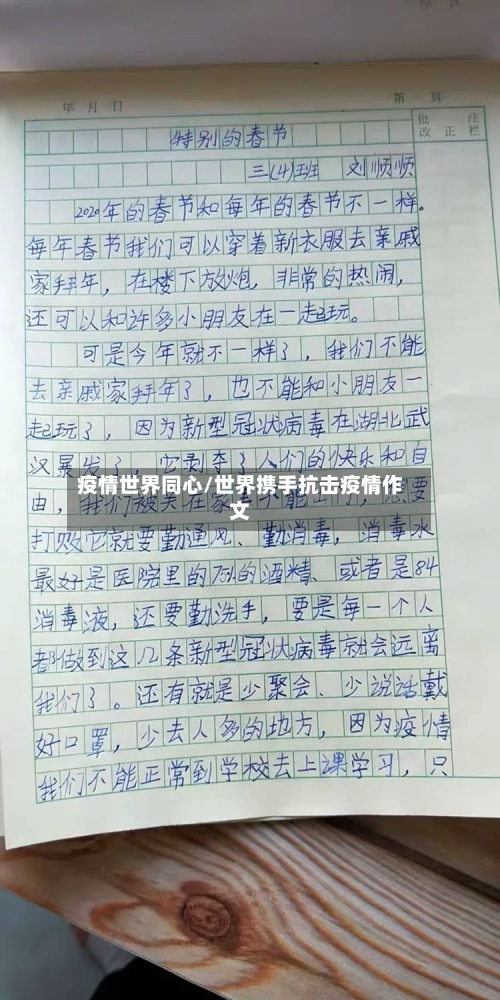 年 月 日
第 页
批 注
改 正 栏
特别的春节
三(4)班 刘顺顺
2020年的春节和每年的春节不一样。
每年春节我们可以穿着新衣服去亲戚
家拜年，在楼下放炮，非常的热闹，
还可以和许多小朋友在一起玩。
可是今年就不一样了，我们不能
去亲戚家拜年了，也不能和小朋友一
起玩了，因为新型冠状病毒在湖北武
汉暴发了，它剥夺了人们的快乐和自
由，我们被关在家
疫情世界同心/世界携手抗击疫情作
文
打败它就要勤通风、勤消毒，消毒水
最好是医院里的75%的酒精、或者是84
消毒液，还要勤洗手，要是每一个人
都做到这几条新型冠状病毒就会远离
我们了。还有就是少聚会、少说话戴
好口罩，少去人多的地方，因为疫情
我们不能正常到学校去上课学习，只